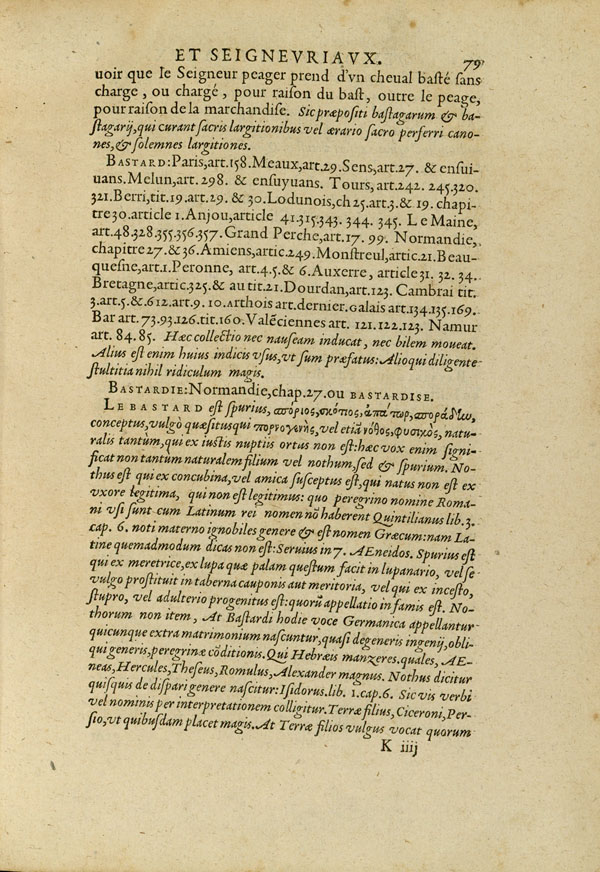 ET SEIGNEVRIAVX. 79
uoir que le Seigneur peager prend d'vn cheual basté sans
charge, ou chargé, pour raison du bast, outre le peage,
pour raison de la marchandise. Sic præpositi bastagarum & ba-
stagarij, qui curant sacris largitionibus vel ærario sacro perferri cano-
nes, & solemnes largitiones.
BASTARD: Paris, art. 158. Meaux, art. 29. Sens, art. 27. & ensui-
uans. Melun, art. 298. & ensuyuans. Tours, art. 242. 245. 320.
321. Berri, tit. 19. art. 29. & 30. Lodunois, ch 25. art. 3. & 19. chapi-
tre 30. article 1. Anjou, article 41. 315. 343. 344. 345. Le Maine,
art. 48. 328. 355. 356. 357. Grand Perche, art. 17. 99. Normandie,
chapitre 27. & 36. Amiens, artic. 249. Monstreul, artic. 21. Beau-
quesne, art. 1. Peronne, art. 4. 5. & 6. Auxerre, article 31. 32. 34.
Bretagne, artic. 325. & au tit. 21. Dourdan, art. 123. Cambrai tit.
3. art. 5. & 6. 12. art. 9. 10. Arthois art. dernier. Calais art. 134. 135. 169.
Bar art. 73. 93. 126. tit. 160. Valẽciennes art. 121. 122. 123. Namur
art. 84. 85. Hæc collectio nec nauseam inducat, nec bilem moueat.
Alius est enim huius indicis vsus, vt sum præfatus: Alioqui diligente
stultitia nihil ridiculum magis.
BASTARDIE: Normandie, chap. 27. ou BASTARDISE.
LE BASTARD est spurius, σπόριος, σκόπιος, ἀπάτωρ, σποράδην,
conceptus, vulgò quæsitus qui πορνογενής, vel etiã νόθος, φυσικὸς, natu-
ralis tantùm, qui ex iustis nuptiis ortus non est: hæc vox enim signi-
ficat non tantùm naturalem filium vel nothum, sed & spurium. No-
thus est qui ex concubina, vel amica susceptus est, qui natus non est ex
vxore legitima, qui non est legitimus: quo peregrino nomine Roma-
ni vsi sunt cum Latinum rei nomen nõ haberent Quintilianus lib. 3.
cap. 6. noti materno ignobiles genere & est nomen Græcum: nam La-
tine quemadmodum dicas non est: Seruius in 7. AEneidos. Spurius est
qui ex meretrice, ex lupa quæ palam questum facit in lupanario, vel se
vulgo prostituit in taberna cauponis aut meritoria, vel qui ex incesto,
stupro, vel adulterio progenitus est: quorũ appellatio in famis est. No-
thorum non item, At Bastardi hodie voce Germanica appellantur
quicunque extra matrimonium nascuntur, quasi degeneris ingenij, obli-
qui generis, peregrinæ cõditionis. Qui Hebræis manzeres. quales, AE-
neas, Hercules, Theseus, Romulus, Alexander magnus. Nothus dicitur
quisquis de dispari genere nascitur: Isidorus. lib. 1. cap. 6. Sic vis verbi
vel nominis per interpretationem colligitur. Terræ filius, Ciceroni, Per-
sio, vt quibusdam placet magis. At Terræ filios vulgus vocat quorum
K iiij